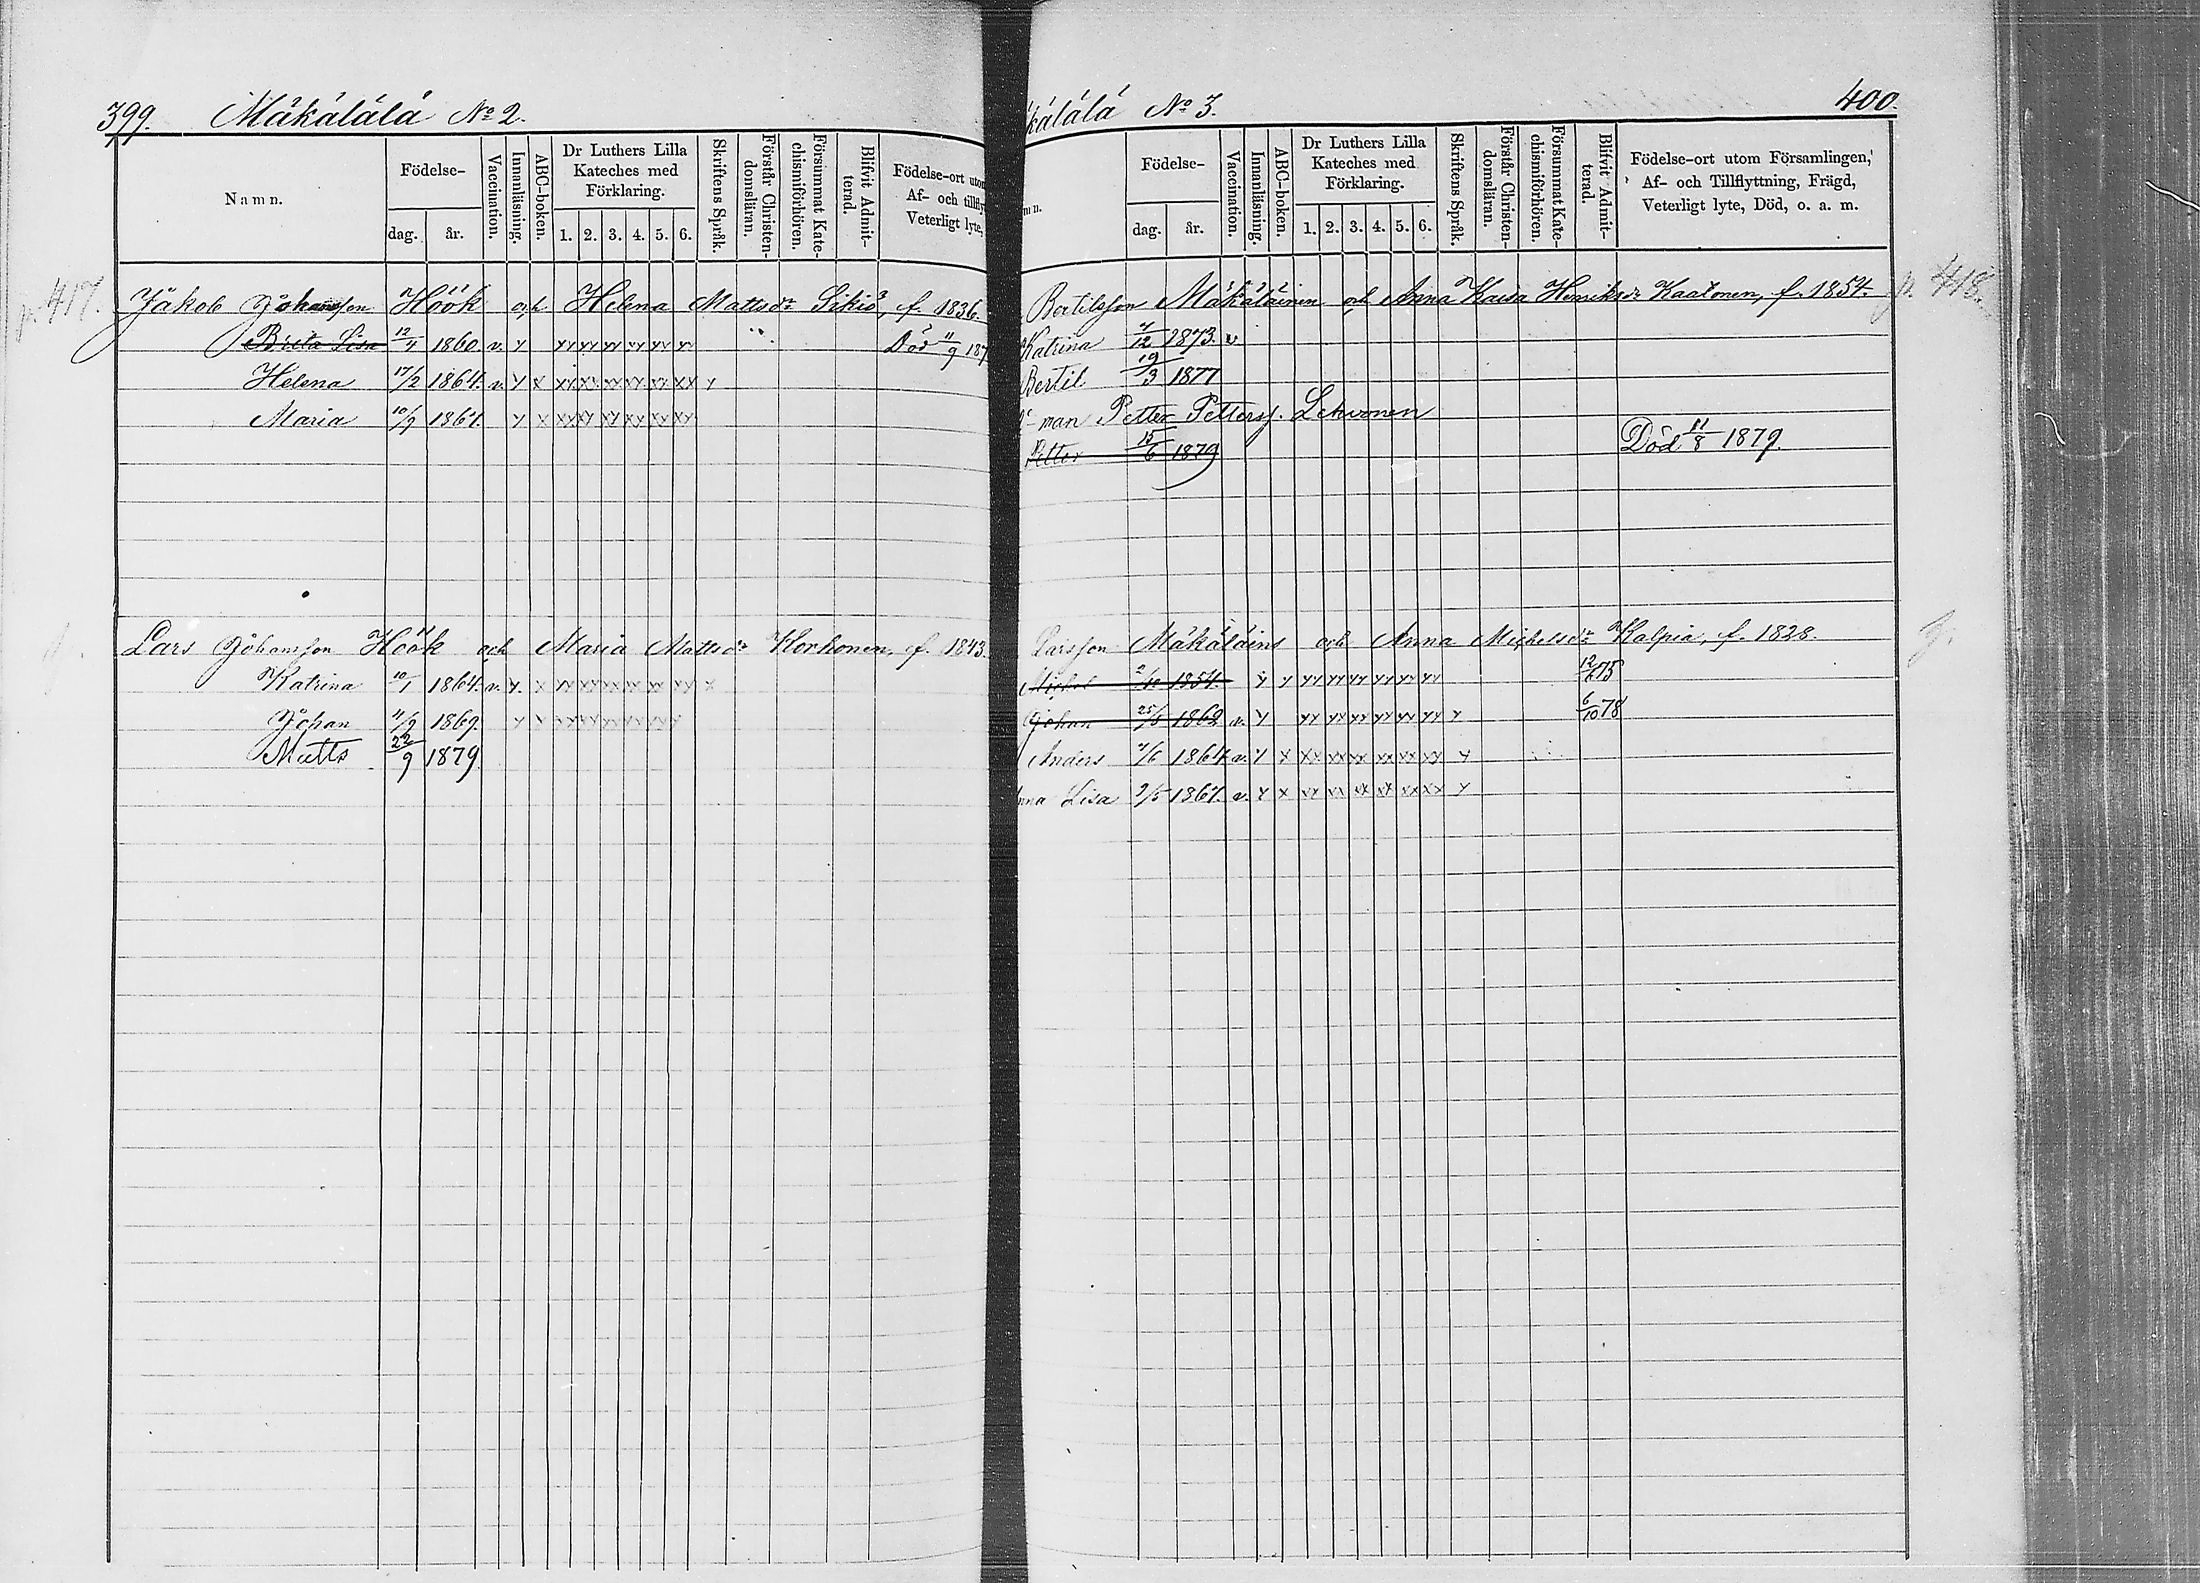 399. Mäkälälä No 2.
Namn.
Födelse-
dag. år.
Vaccination.
Innanläsning.
ABC-boken.
Dr Luthers Lilla Kateches med Förklaring.
1. 2. 3. 4. 5. 6.
Skriftens Språk.
Förstår Christen-domsläran.
Försummat Kate-chismiförhören.
Blifvit Admit-terad.
Födelse-ort utom
Af- och tillfly
Veterligt lyte,
p. 417. Jakob Johansson Höök och Helena Mattsdr Sikiö, f. 1836.
Brita Lisa 12/4 1860. v. Död 11/9 187
Helena 17/2 1864. v.
Maria 10/9 1867.
Lars Johansson Höök och Maria Mattsdr Korhonen, f. 1843.
Katrina 10/1 1864. v.
Johan 11/2 1869.
Matts 22/9 1879.
kälälä No 3. 400.
mn.
Födelse-
dag. år.
Vaccination.
Innanläsning.
ABC-boken.
Dr Luthers Lilla Kateches med Förklaring.
1. 2. 3. 4. 5. 6.
Skriftens Språk.
Förstår Christen-domsläran.
Försummat Kate-chismiförhören.
Blifvit Admit-terad.
Födelse-ort utom Församlingen,
Af- och Tillflyttning, Frägd,
Veterligt lyte, Död, o. a. m.
Bertilsson Mäkäläinen och Anna Kaisa Henriksdr Kaatonen, f. 1854. p. 418.
Katrina 7/12 1873. v
Bertil 19/3 1877
man Petter Petterss. Lehvonen
Petter 15/6 1879 Död 11/8 1879.
Larsson Mäkäläins och Anna Michelsdr Kalpia, f. 1828.
Michel 2/10 1854. 12/6 75
Johan 25/5 1862 v. 6/10 78
Anders 7/6 1864 v.
nna Lisa 2/5 1867. v.